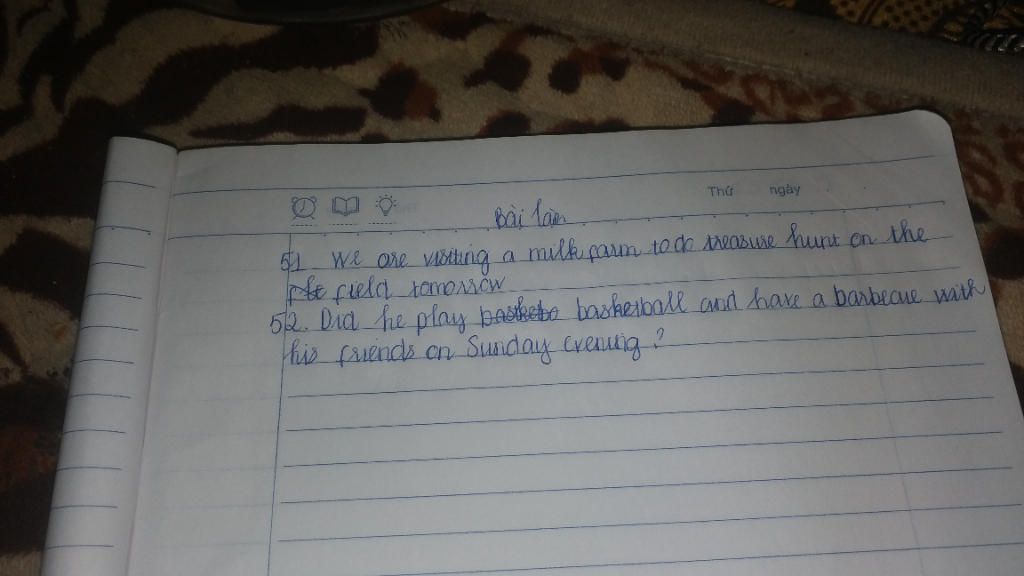 Thứ ngày
Bài làm
51. We are visiting a milk farm to do treasure hunt on the
field tomorrow
52. Did he play basketball and have a barbecue with
his friends on Sunday evening?